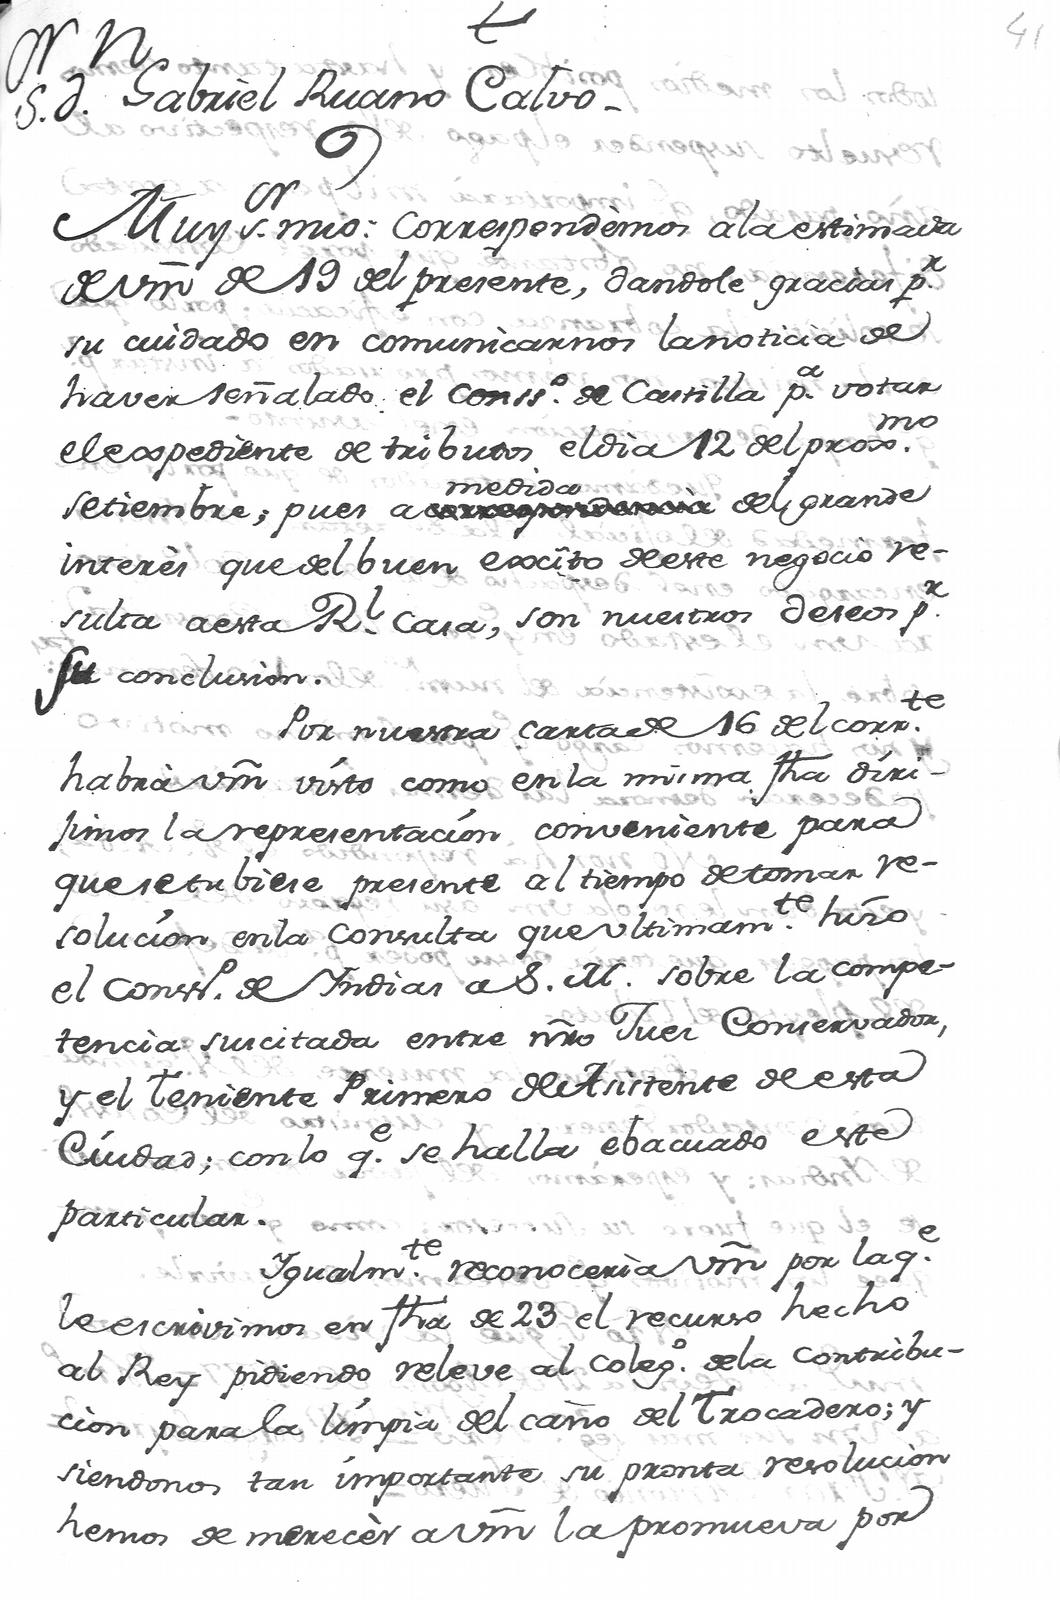 41
S.or D.n Gabriel Ruano Calvo.
Muy S.or mio: Correspondèmos ala estimada
de Vm̃ de 19 del presente, dandole gracias p.r
su cuidado en comunicarnos lanoticia de
haver señalado el Conss.o de Castilla p.a votar
el expediente de tributos eldia 12 del prox.mo
setiembre; pues a correspondencia medida del grande
interès que del buen exc̃ito de este negocio re-
sulta aesta R.l Casa, son nuestros deseos p.r
su conclusion.
Por nuestra carta de 16 del corr.te
habrà Vm̃ visto como en la misma fha diri-
jimos la representacion conveniente para
que se tubiese presente al tiempo de tomar re-
solucion enla Consulta que ultimam.te hizo
el Conss.o de Yndias a S. M. sobre la compe-
tencia suscitada entre ñro Juez Conservador,
y el Teniente Primero de Asistente de esta
Ciudad; con lo q.e se halla ebacuado este
particular.
Ygualm.te reconoceria Vm̃ por la q.e
le escrivimos en fha de 23 el recurso hecho
al Rey pidiendo releve al Coleg.o dela contribu-
cion para la limpia del caño del Trocadero; y
siendonos tan importante su pronta resolucion
hemos de merecèr a Vm̃ la promueva por